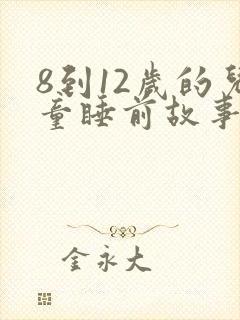 8到12歲的兒
童睡前故事
金永大